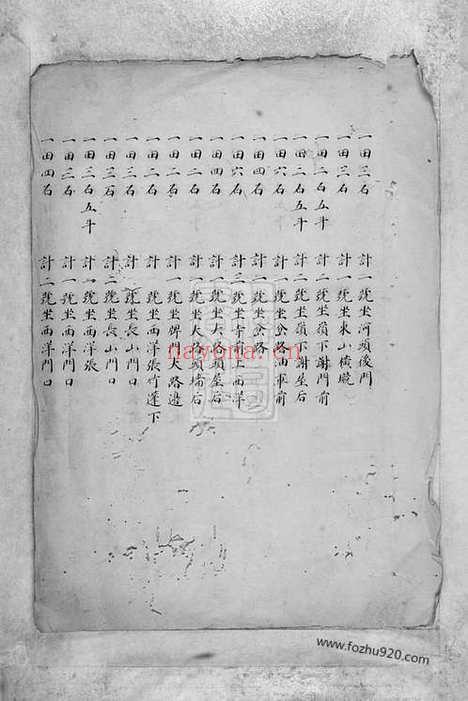 一田三石 計一號坐河頭後門
一田三石 計一號坐東山橫壠
一田二石五斗 計二號坐嶺下謝門前
一田三石五斗 計二號坐嶺下謝屋后
一田六石 計一號坐坌路油車前
一田四石 計一號坐坌路
一田六石 計三號坐寺 上西洋
一田四石 計一號坐大路頭屋后
一田二石 計一號坐大路頭墻后
一田二石 計一號坐牌門大路邊
一田二石 計一號坐西洋張竹蓬下
一田三石 計一號坐長山門口
一田三石 計三號坐長山門口
一田三石五斗 計一號坐西洋張
一田三石 計一號坐西洋門口
一田四石 計二號坐西洋門口
nayona.cn
www.fozhu920.com